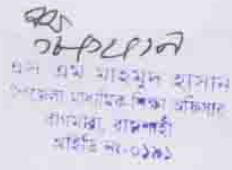 এস এম মাহমুদ হাসান
উপজেলা মাধ্যমিক শিক্ষা অফিসার
বাগমারা, রাজশাহী
আইডি নং-০১৯১